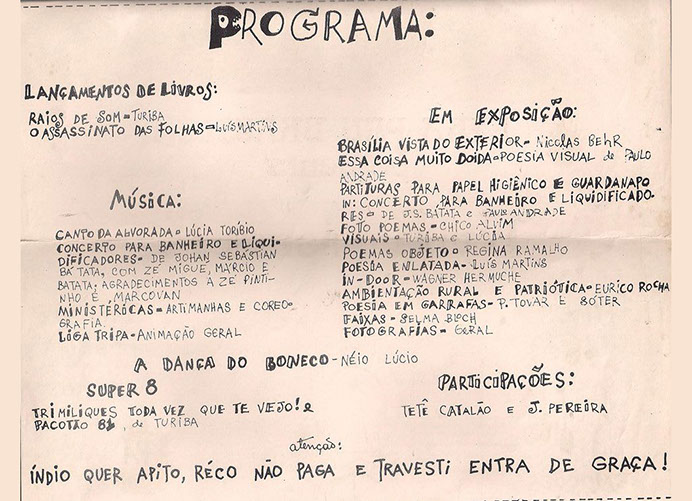 PROGRAMA:
LANÇAMENTOS DE LIVROS:
RAIOS DE SOM - TURIBA
O ASSASSINATO DAS FOLHAS - LUÍS MARTINS
MÚSICA:
CANTO DA ALVORADA - LÚCIA TORÍBIO
CONCERTO PARA BANHEIRO E LIQUI-
DIFICADORES - DE JOHAN SEBASTIAN
BATATA, COM ZÉ MIGUE, MÁRCIO E
BATATA; AGRADECIMENTOS A ZÉ PINTI-
NHO E MARCOVAN
MINISTÉRICAS - ARTIMANHAS E COREO-
GRAFIA.
LIGA TRIPA - ANIMAÇÃO GERAL
EM EXPOSIÇÃO:
BRASÍLIA VISTA DO EXTERIOR - NICOLAS BEHR
ESSA COISA MUITO DOIDA - POESIA VISUAL de PAULO
ANDRADE
PARTITURAS PARA PAPEL HIGIÊNICO E GUARDANAPO
IN: CONCERTO PARA BANHEIRO E LIQUIDIFICADO-
RES - DE J.S. BATATA e PAULO ANDRADE
FOTO POEMAS - CHICO ALVIM
VISUAIS - TURIBA E LÚCIA
POEMAS OBJETO - REGINA RAMALHO
POESIA ENLATADA - LUÍS MARTINS
IN-DOOR - WAGNER HERMUCHE
AMBIENTAÇÃO RURAL E PATRIÓTICA - EURICO ROCHA
POESIA EM GARRAFAS - P. TOVAR E SÓTER
FAIXAS - SELMA BLOCH
FOTOGRAFIAS - GERAL
A DANÇA DO BONECO - NÉIO LÚCIO
SUPER 8
TRIMILIQUES TODA VEZ QUE TE VEJO! e
PACOTÃO 81 de TURIBA
PARTICIPAÇÕES:
TETÊ CATALÃO E J. PEREIRA
atenção:
ÍNDIO QUER APITO, RÉCO NÃO PAGA E TRAVESTI ENTRA DE GRAÇA!